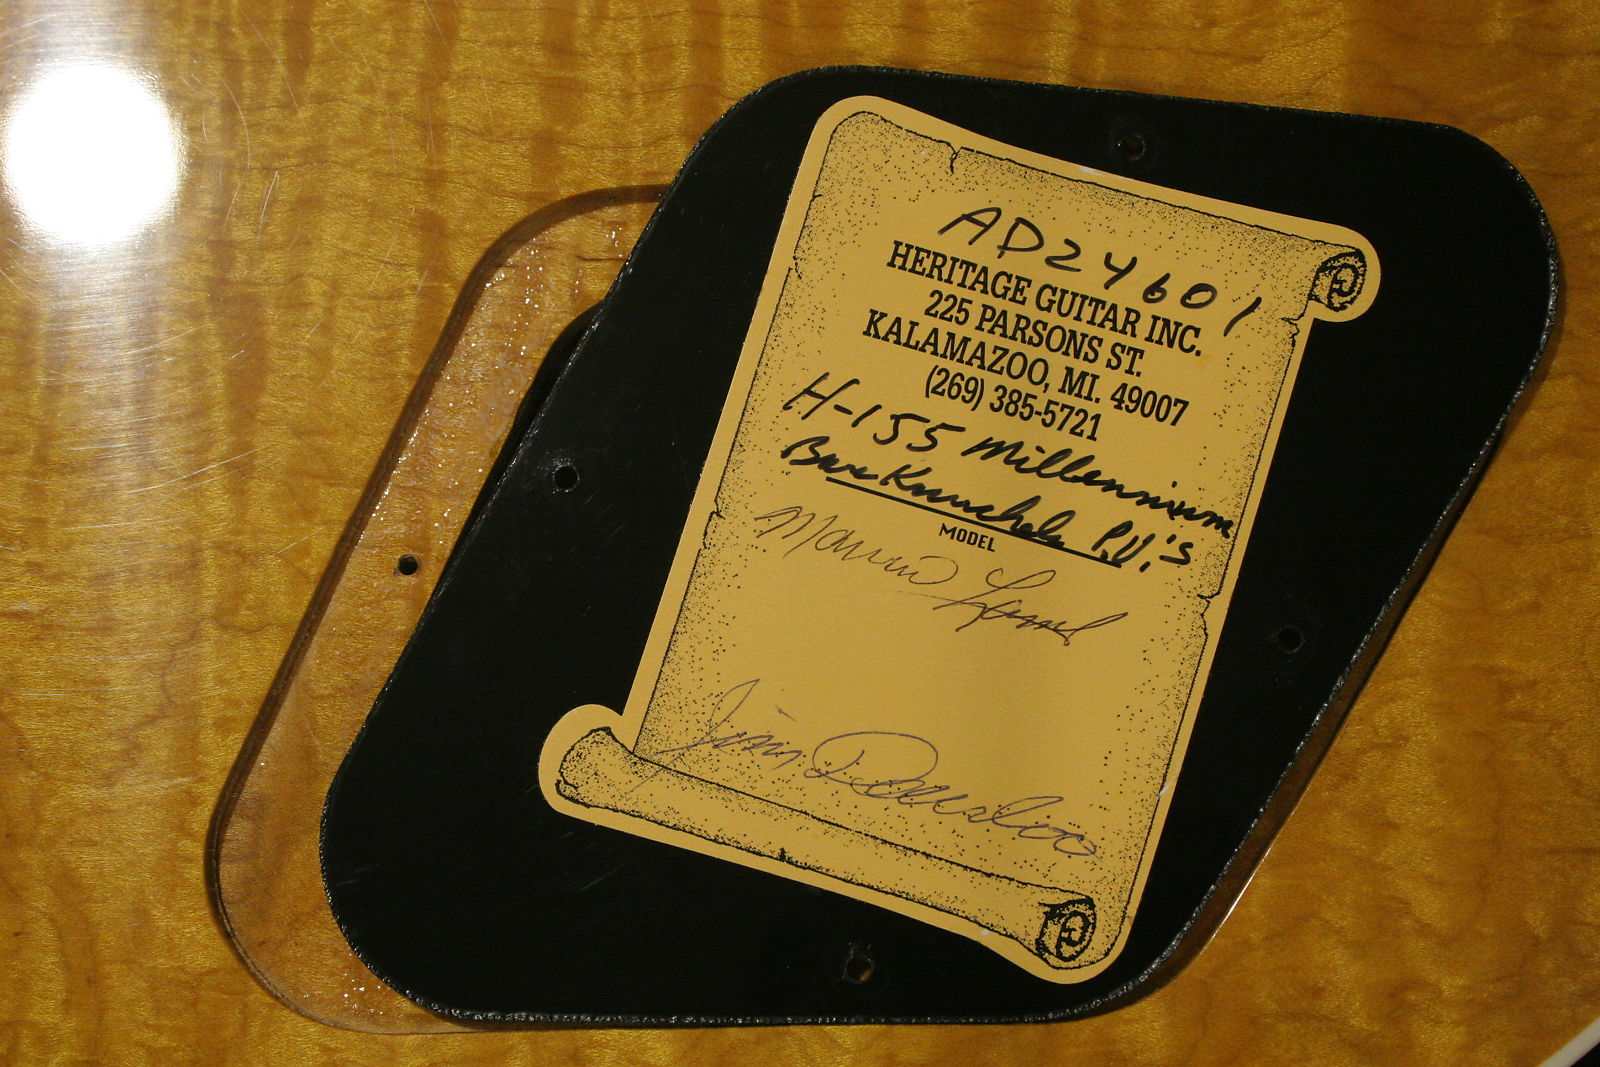 AD24601
HERITAGE GUITAR INC.
225 PARSONS ST.
KALAMAZOO, MI. 49007
(269) 385-5721
H-155 Millennium
BareKnuckle P.U.'s
MODEL
Marvin Lamb
Jim Deurloo